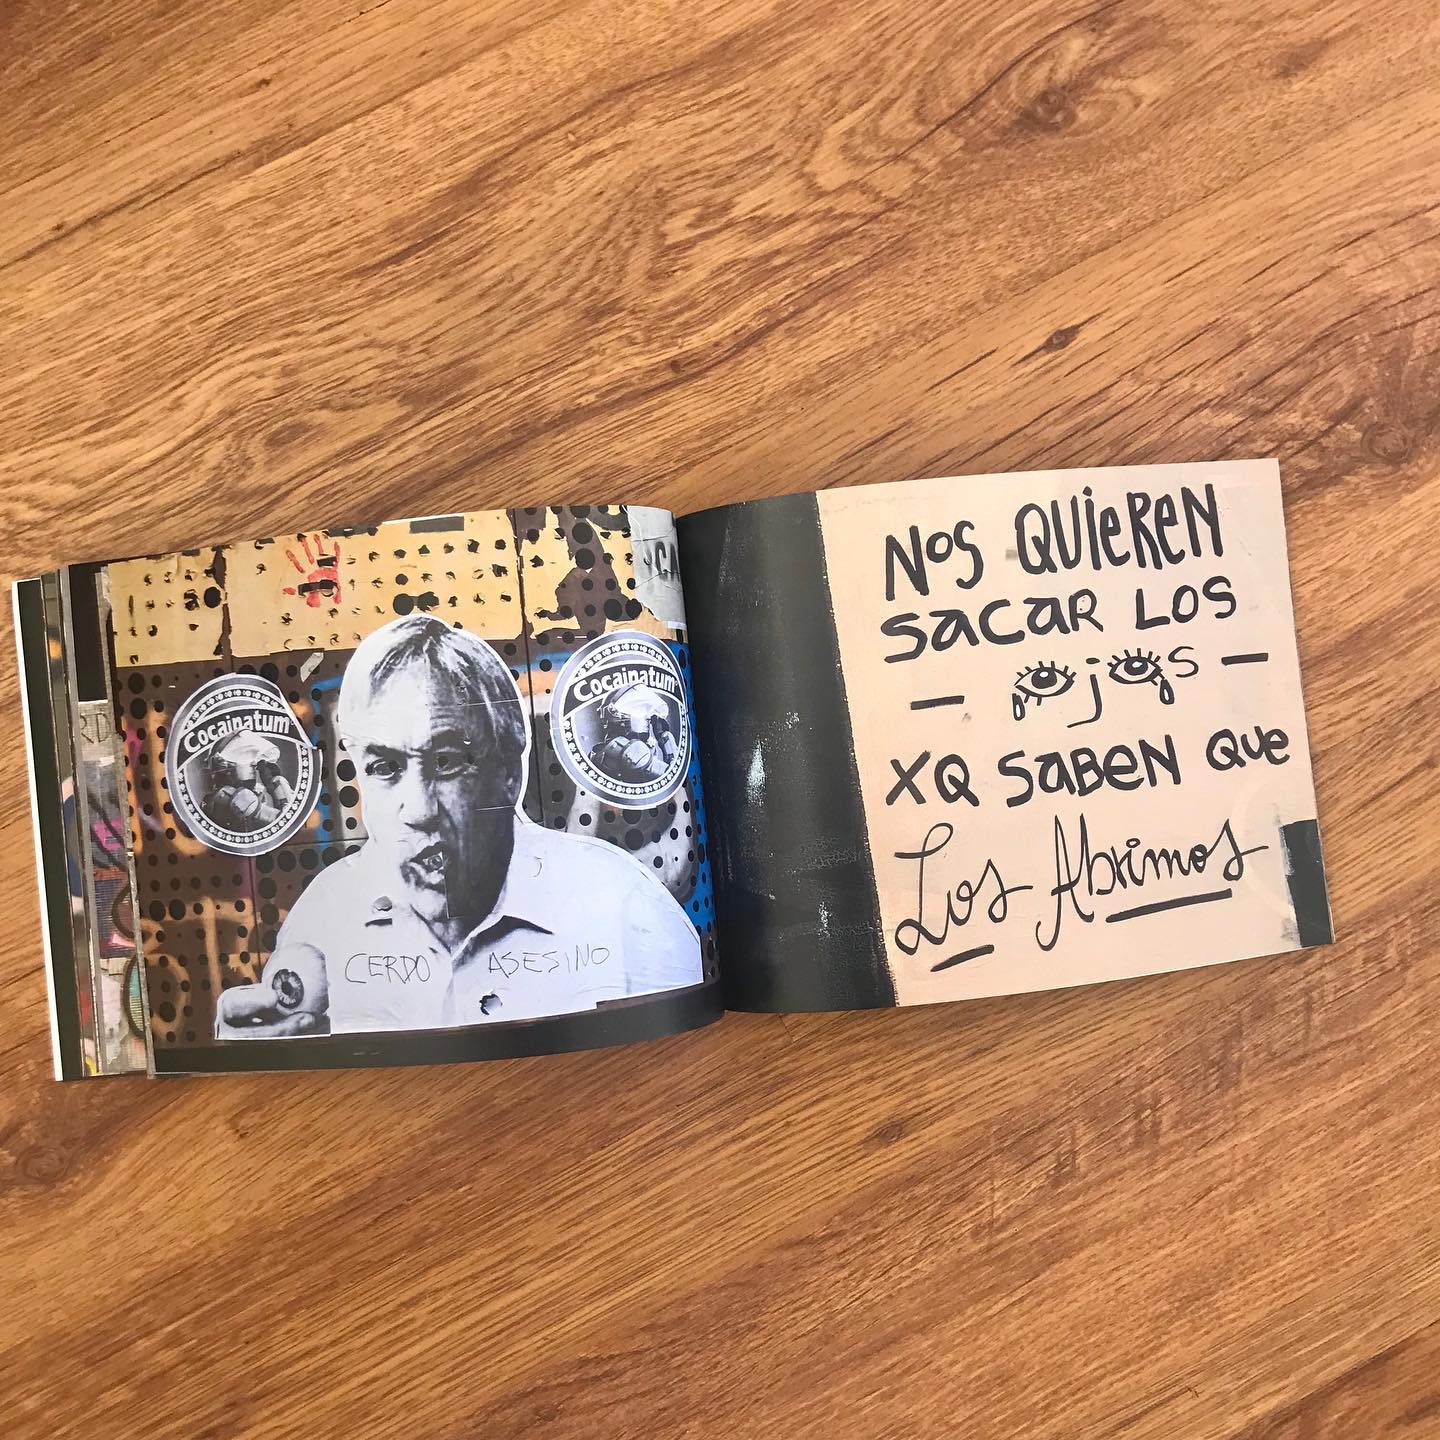 Cocainatum
Cocainatum
CERDO ASESINO
NOS QUIEREN
SACAR LOS
— ojos —
XQ SABEN QUE
Los Abrimos